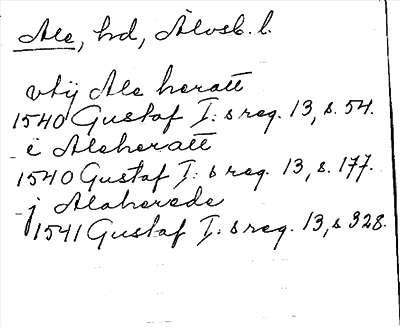 Ale, hd, Älvsb. l.
vtij Ale heratt
1540 Gustaf I:s reg. 13, s. 54.
i Aleheratt
1540 Gustaf I:s reg. 13, s. 177.
j Aleherede
1541 Gustaf I:s reg. 13, s 328.